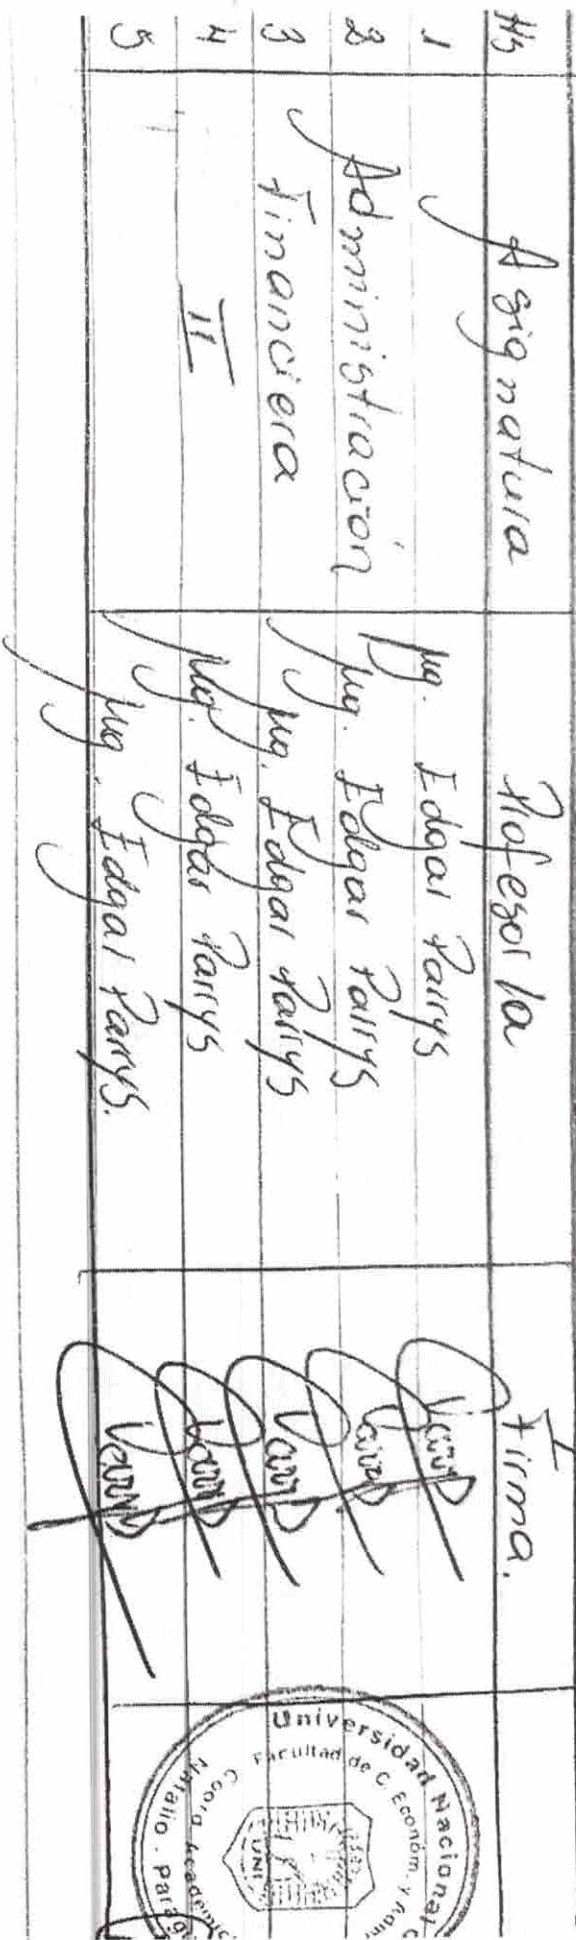 Hs Asignatura Profesor/a Firma.
1 Mg. Edgar Parrys
2 Administración Mg. Edgar Parrys
3 Financiera Mg. Edgar Parrys
4 II Mg. Edgar Parrys
5 Mg. Edgar Parrys.
Universidad Nacional
Facultad de C. Económ. y Adm
Coord. Académic
Natalio - Parag
UNI